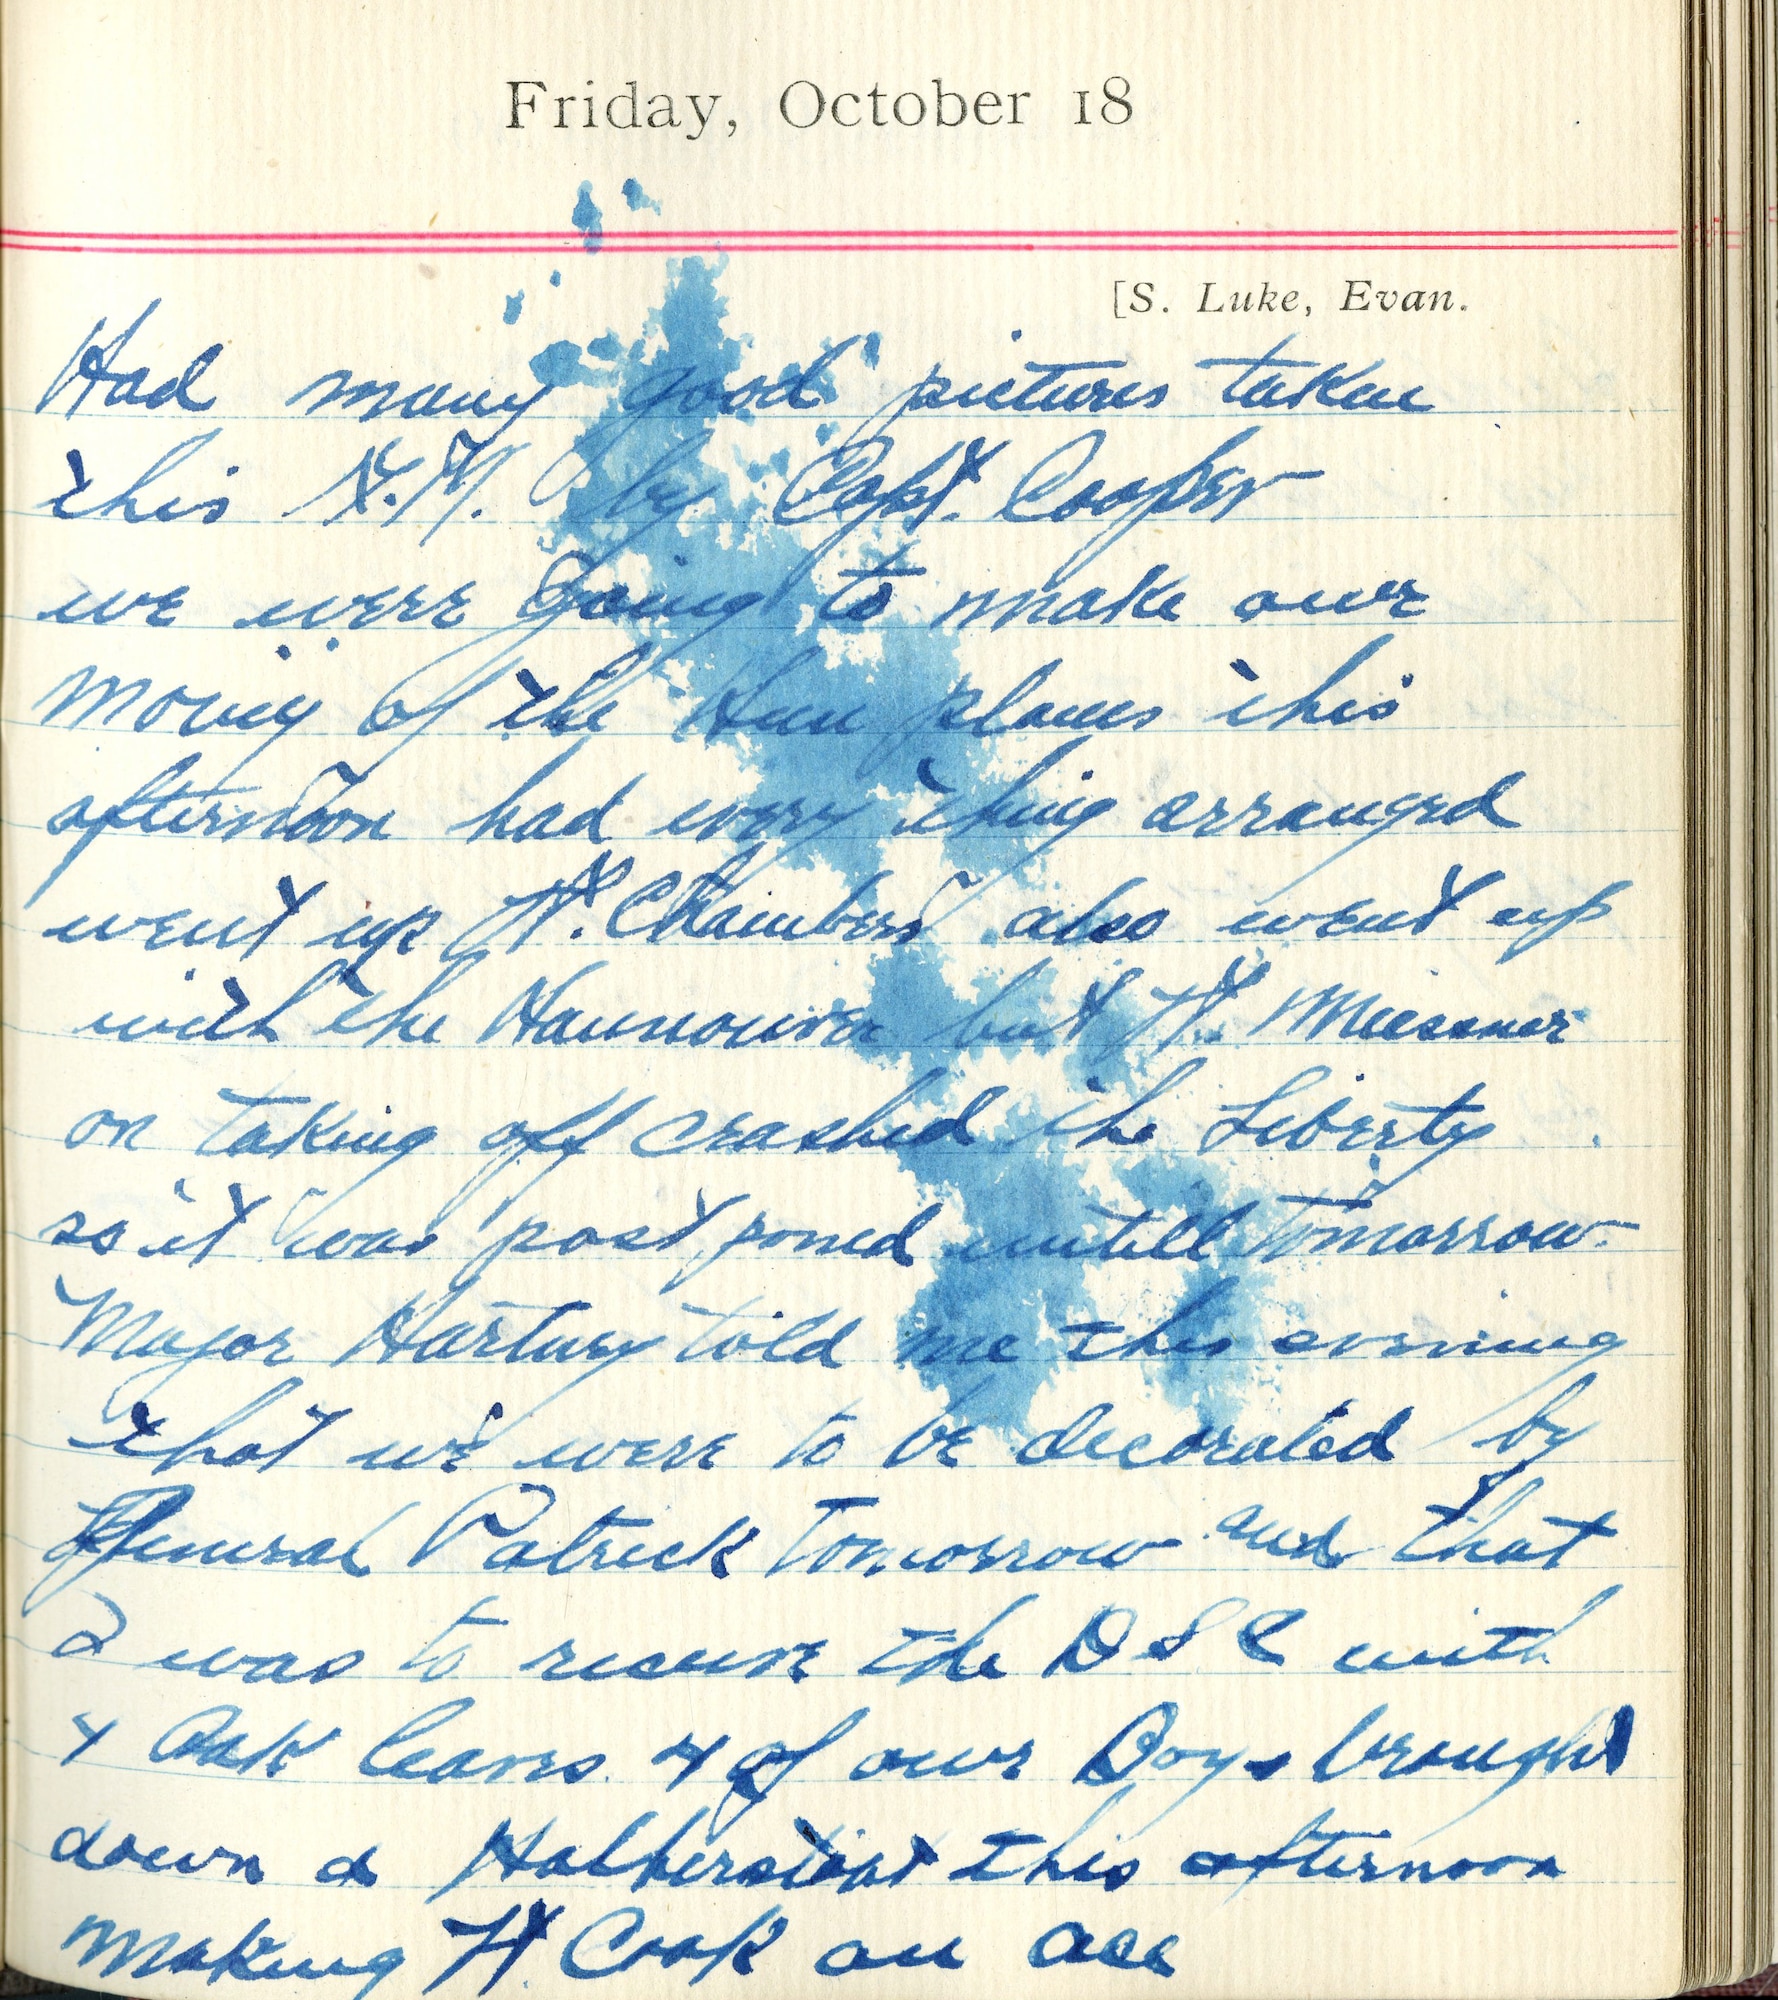 Friday, October 18
[S. Luke, Evan.
Had many good pictures taken
this A.M. by Capt. Cooper
we were Going to make our
Moviy of the Hun planes this
afternoon had every thing arranged
went up Lt. Chambers also went up
with the Hannouver but Lt. Meissner
on taking off crashed the Liberty
so it was post poned untill tomorrow.
Major Hartney told me this evening
that we were to be decorated by
General Patrick tomorrow and that
I was to receive the DSC with
4 Oak leaves. 4 of our Boys brought
down a Halberstat this afternoon
making Lt. Cook an ace